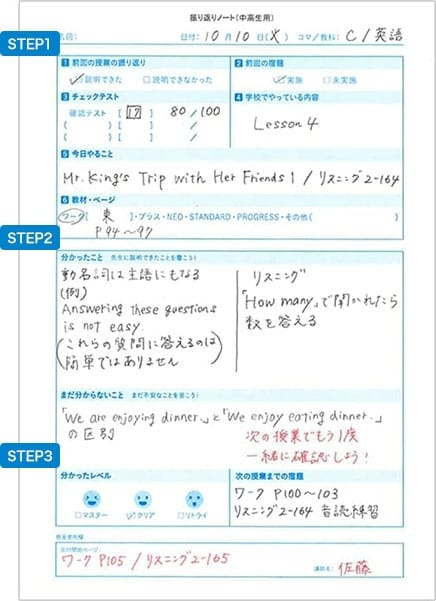 振り返りノート(中高生用)
STEP1
名前: 日付: 10月10日(火) コマ/教科: C/英語
1 前回の授業の振り返り
☑説明できた □説明できなかった
2 前回の宿題
☑実施 □未実施
3 チェックテスト
確認テスト [ 17 ] 80/100
( ) [ ] /
( ) [ ] /
4 学校でやっている内容
Lesson 4
5 今日やること
Mr. King's Trip with Her Friends 1 / リスニング2-164
6 教材・ページ
ワーク [ 東 ]・プラス・NEO・STANDARD・PROGRESS・その他( )
P94~97
STEP2
分かったこと 先生に説明できたことを書こう!
動名詞は主語にもなる
(例)
Answering these questions
is not easy.
(これらの質問に答えるのは
簡単ではありません)
リスニング
「How many」で聞かれたら
数を答える
まだ分からないこと まだ不安なことを書こう!
「We are enjoying dinner.」と「We enjoy eating dinner.」
の区別
次の授業でもう1度
一緒に確認しよう!
STEP3
分かったレベル
□マスター ☑クリア □リトライ
次の授業までの宿題
ワーク P100~103
リスニング2-164 音読練習
次回開始ページ:
ワーク P105 / リスニング2-165
講師名: 佐藤